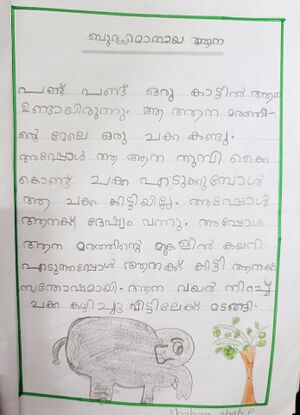 ബുദ്ധിമാനായ ആന
പണ്ട് പണ്ട് ഒരു കാട്ടിൽ ആന
ഉണ്ടായിരുന്നു. ആ ആന മരത്തി-
ന്റെ മേലെ ഒരു ചക്ക കണ്ടു.
അപ്പോൾ ആ ആന തുമ്പി കൈ
കൊണ്ട് ചക്ക എടുക്കുമ്പോൾ
ആ ചക്ക കിട്ടിയില്ല. അപ്പോൾ
ആനക്ക് ദേഷ്യം വന്നു. അപ്പോൾ
ആന മരത്തിന്റെ മുകളിൽ കയറി
എടുത്തപ്പോൾ ആനക്ക് കിട്ടി ആനക്ക്
സന്തോഷമായി. ആന വയർ നിറച്ച്
ചക്ക കഴിച്ചു വീട്ടിലേക്ക് മടങ്ങി.